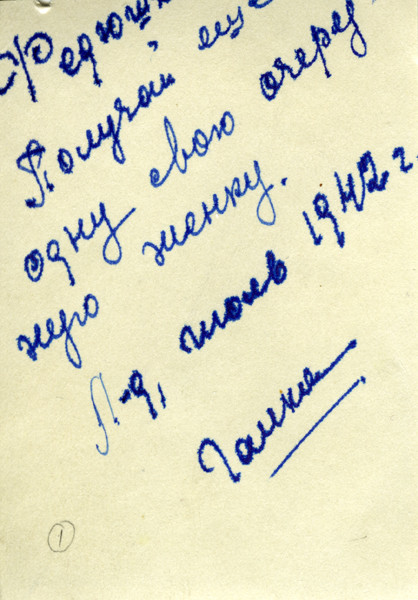 Федюшк
Получай еще
одну свою очеред-
ную женку.
Л-д, июль 1942 г.
1